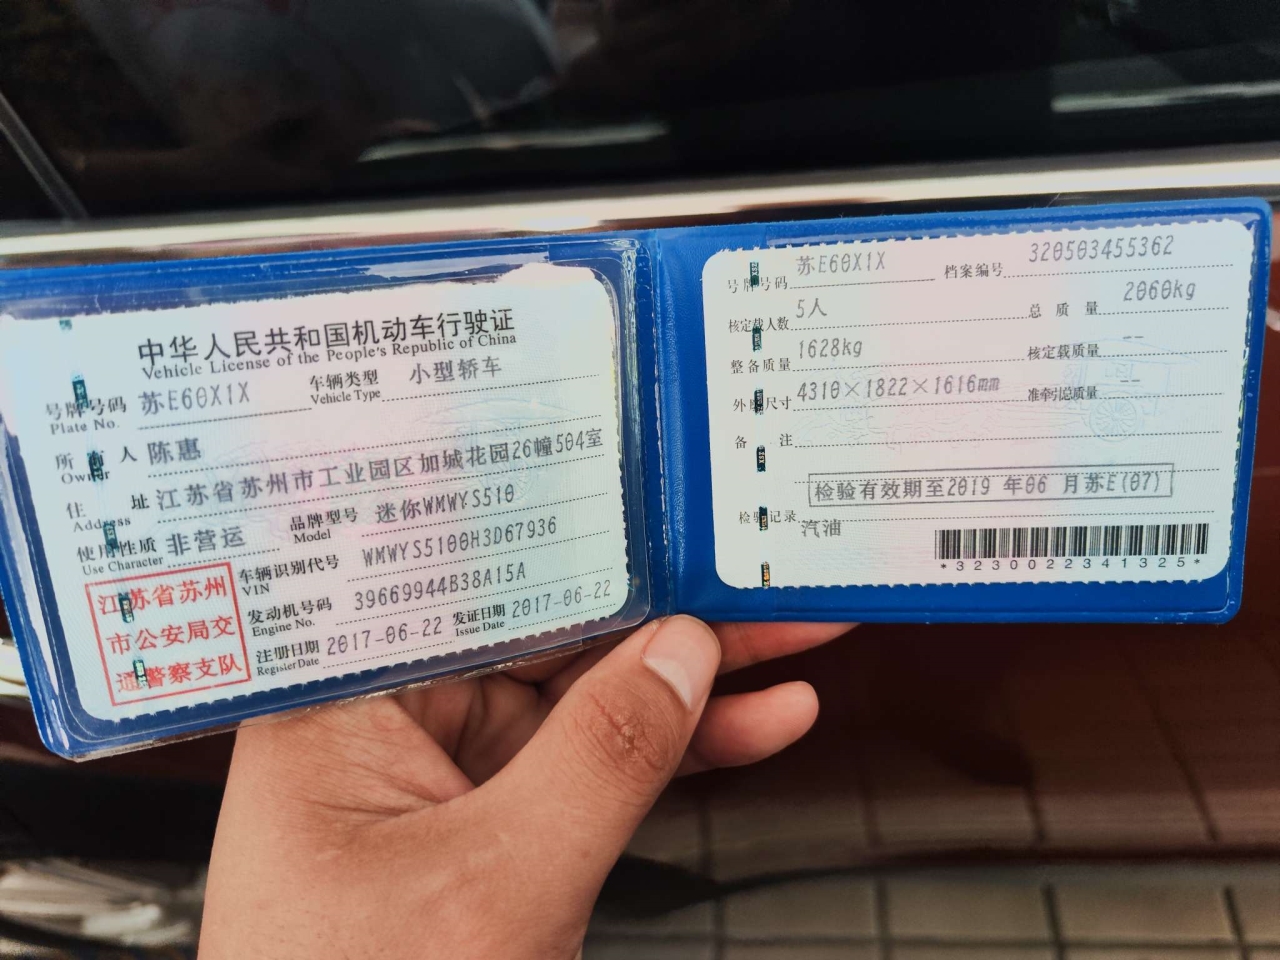 中华人民共和国机动车行驶证
Vehicle License of the People's Republic of China
号牌号码 苏E60X1X 车辆类型 小型轿车
Plate No. Vehicle Type
所有人 陈惠
Owner
住址 江苏省苏州市工业园区加城花园26幢504室
Address
使用性质 非营运 品牌型号 迷你WMWYS510
Use Character Model
江苏省苏州
市公安局交
通警察支队
车辆识别代号 WMWYS5100H3D67936
VIN
发动机号码 39669944B38A15A
Engine No.
注册日期 2017-06-22 发证日期 2017-06-22
Register Date Issue Date
号牌号码 苏E60X1X 档案编号 320503455362
核定载人数 5人 总质量 2060kg
整备质量 1628kg 核定载质量 --
外廓尺寸 4310×1822×1616mm 准牵引总质量 --
备注
检验有效期至2019年06月苏E(07)
检验记录
汽油
*3230022341325*